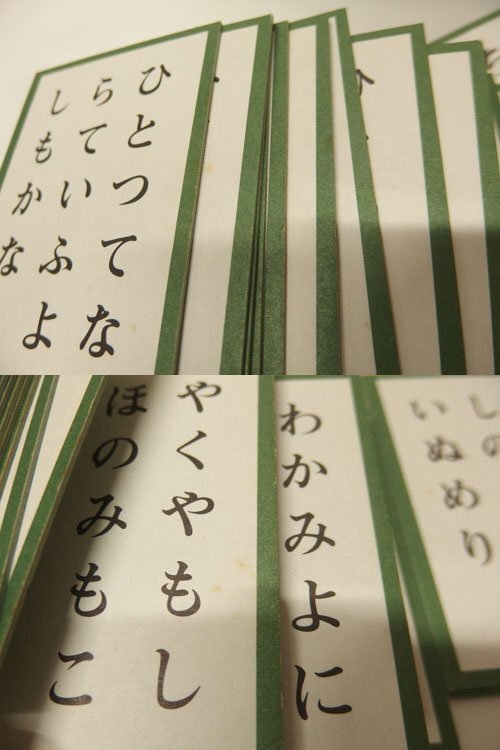 ひとつてな
らていふよ
しもかな
しの
いぬめり
わかみよに
やくやもし
ほのみもこ